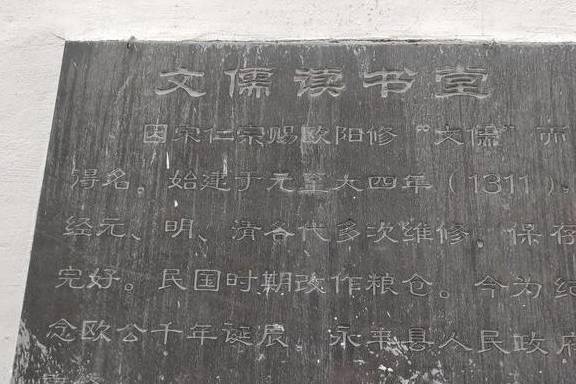 文儒读书堂
因宋仁宗赐欧阳修“文儒”而
得名。始建于元至大四年（1311）。
经元、明、清各代多次维修，保存
完好。民国时期改作粮仓。今为纪
念欧公千年诞辰，永丰县人民政府